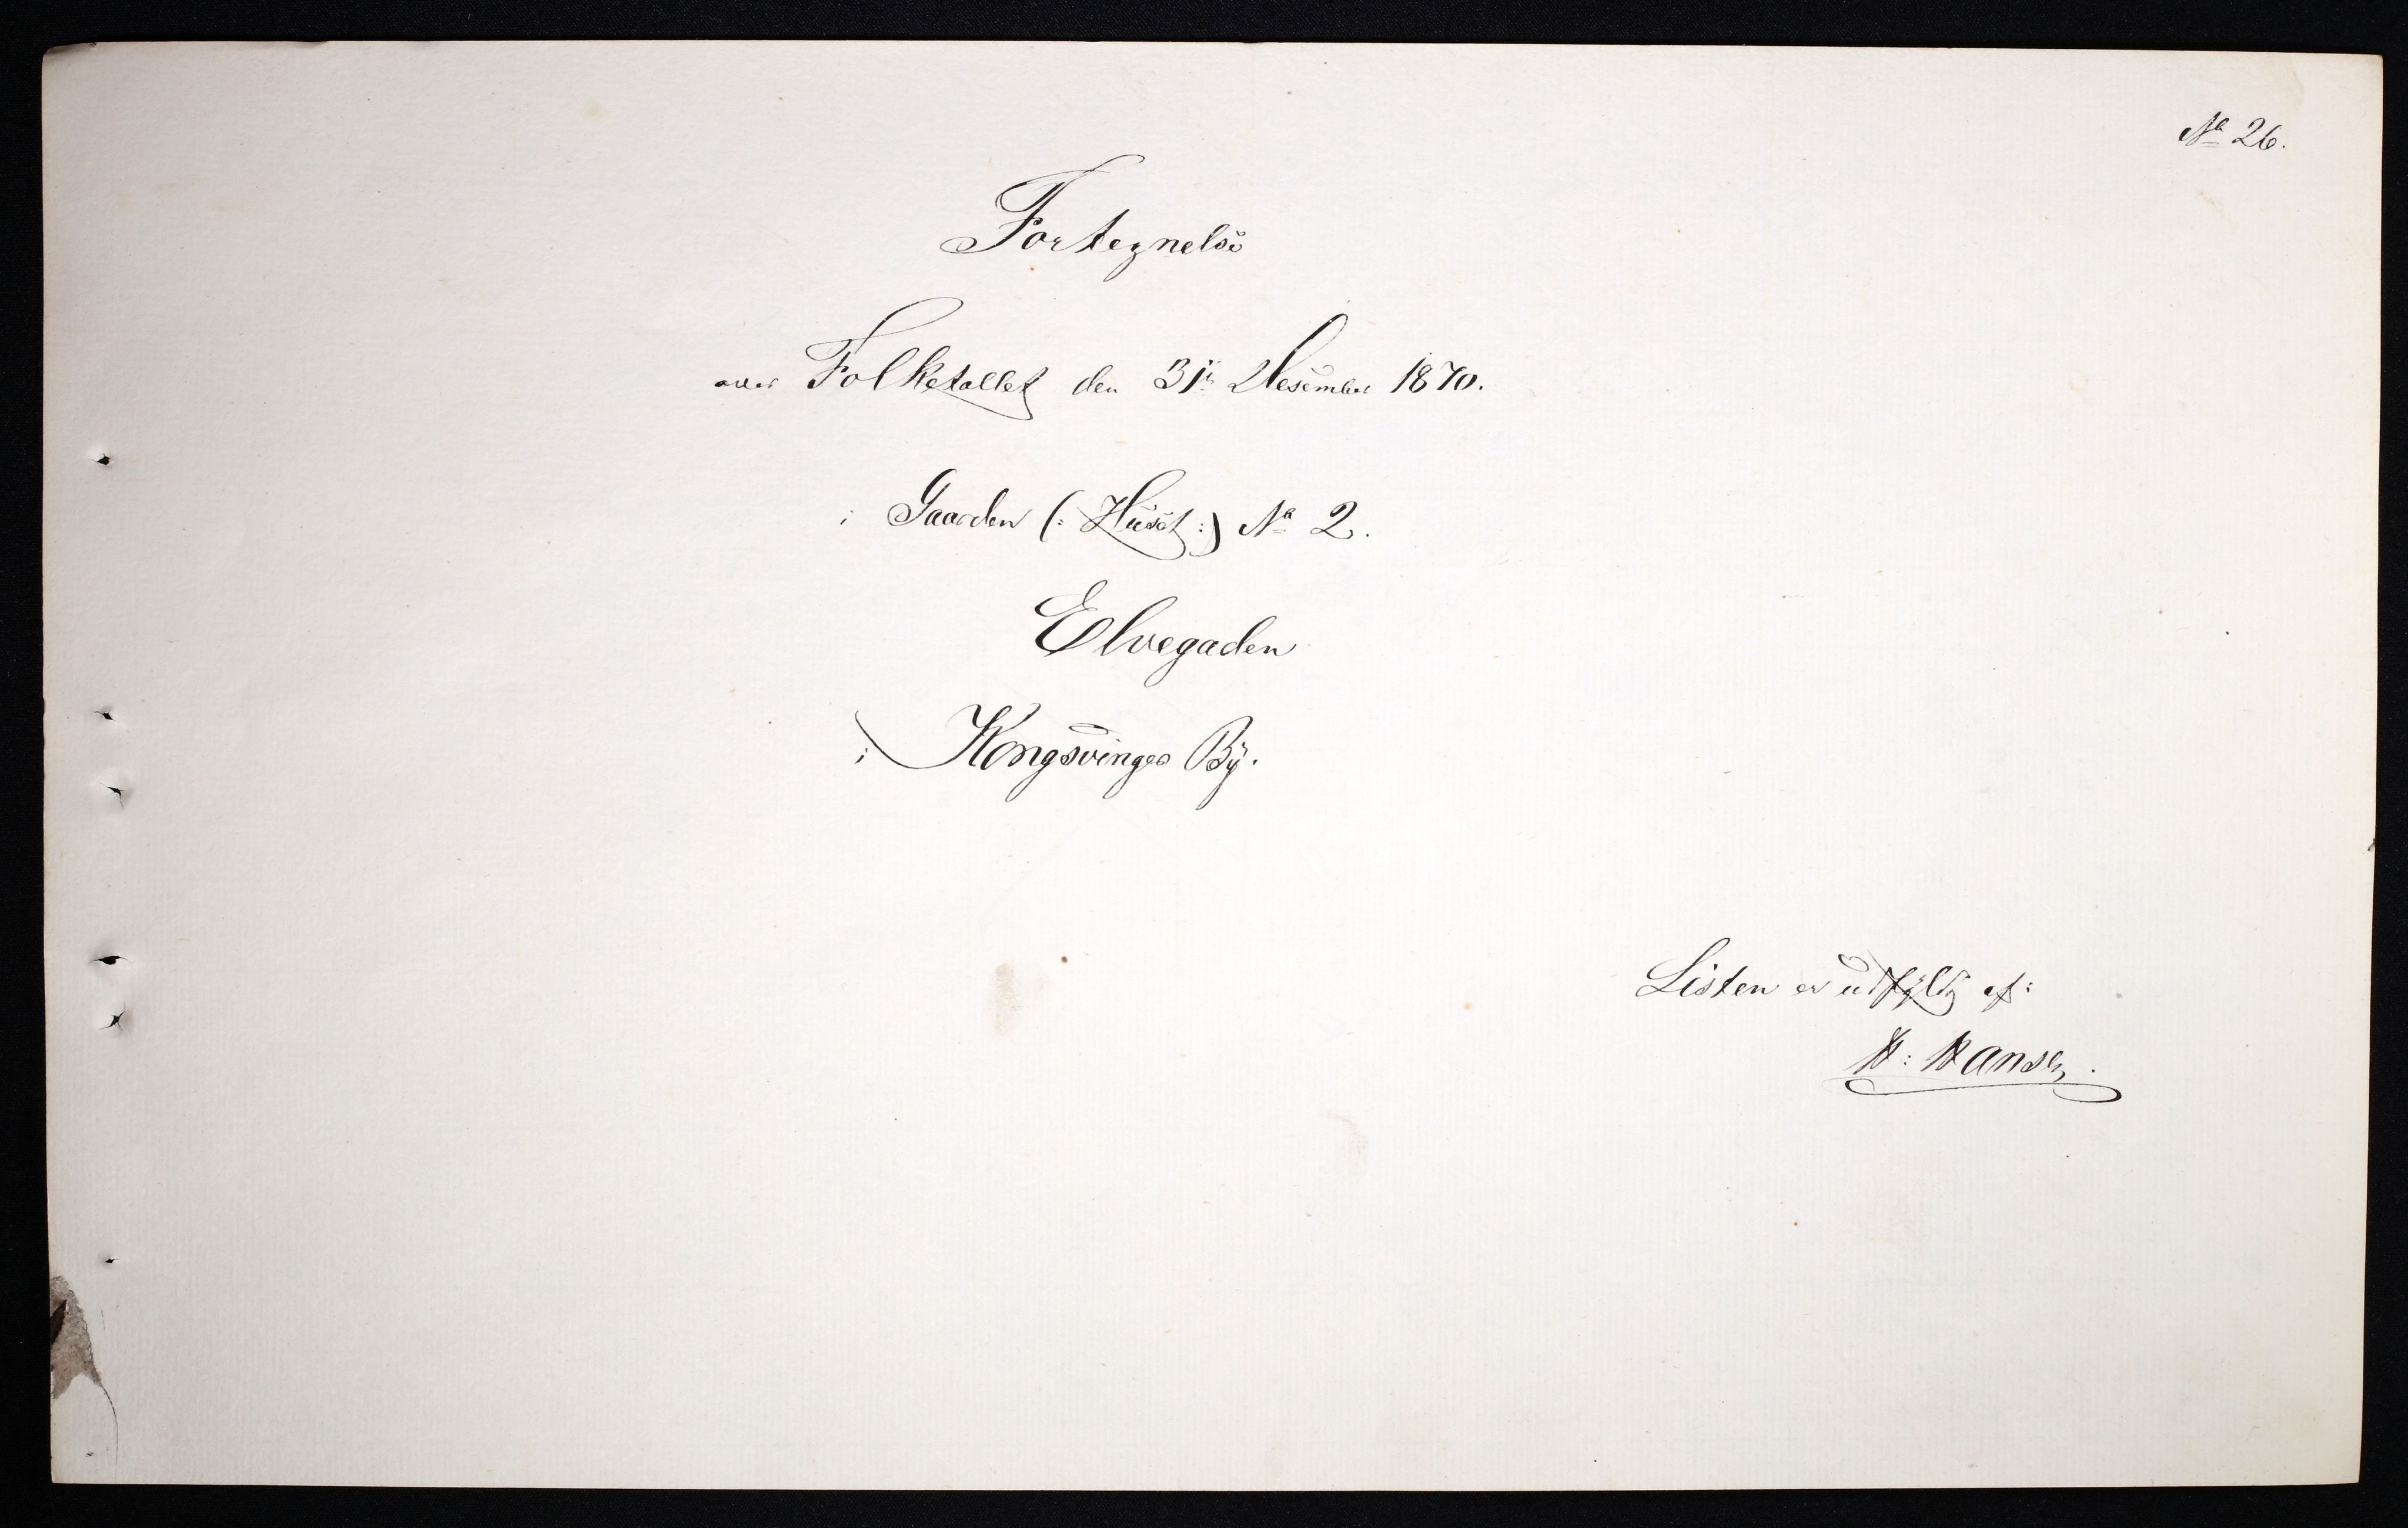 No 26.
Fortegnelse
over Folketallet den 31te Desember 1870.
i Gaarden (: Huset :) No 2.
Elvegaden
i Kongsvinger By.
Listen er udfyldt af:
H: Hansen.